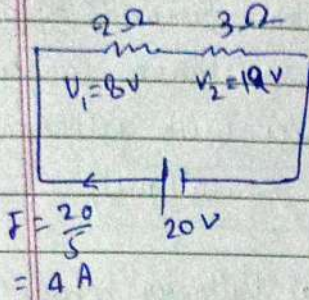 2 Ω 3 Ω
V₁=8V V₂=12V
20 V
I = 20/5
= 4 A